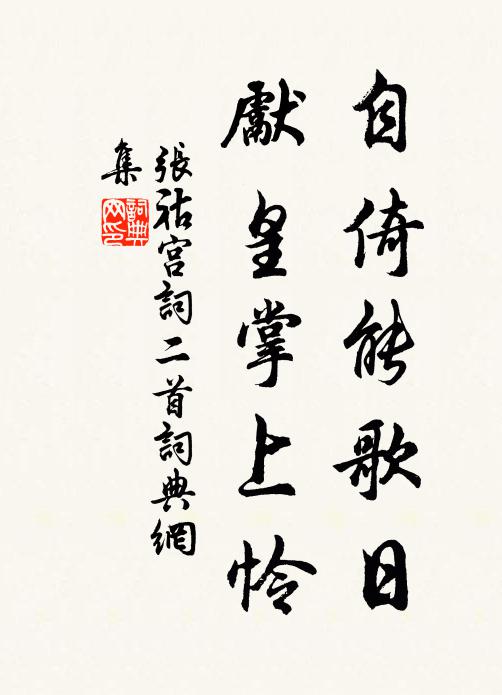 自倚能歌日
獻皇掌上怜
張祜宫詞二首詞典網
集
詞典
网印